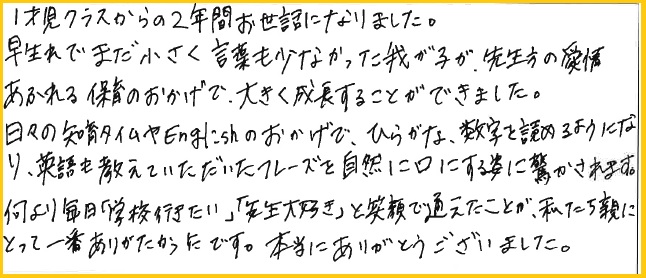 1才児クラスからの2年間お世話になりました。
早生れでまだ小さく言葉も少なかった我が子が、先生方の愛情
あふれる保育のおかげで、大きく成長することができました。
日々の知育タイムやEnglishのおかげで、ひらがな、数字を読めるようにな
り、英語も教えていただいたフレーズを自然に口にする姿に驚かされます。
何より毎日「学校行きたい」「先生大好き」と笑顔で通えたことが、私たち親に
とって一番ありがたかったです。本当にありがとうございました。